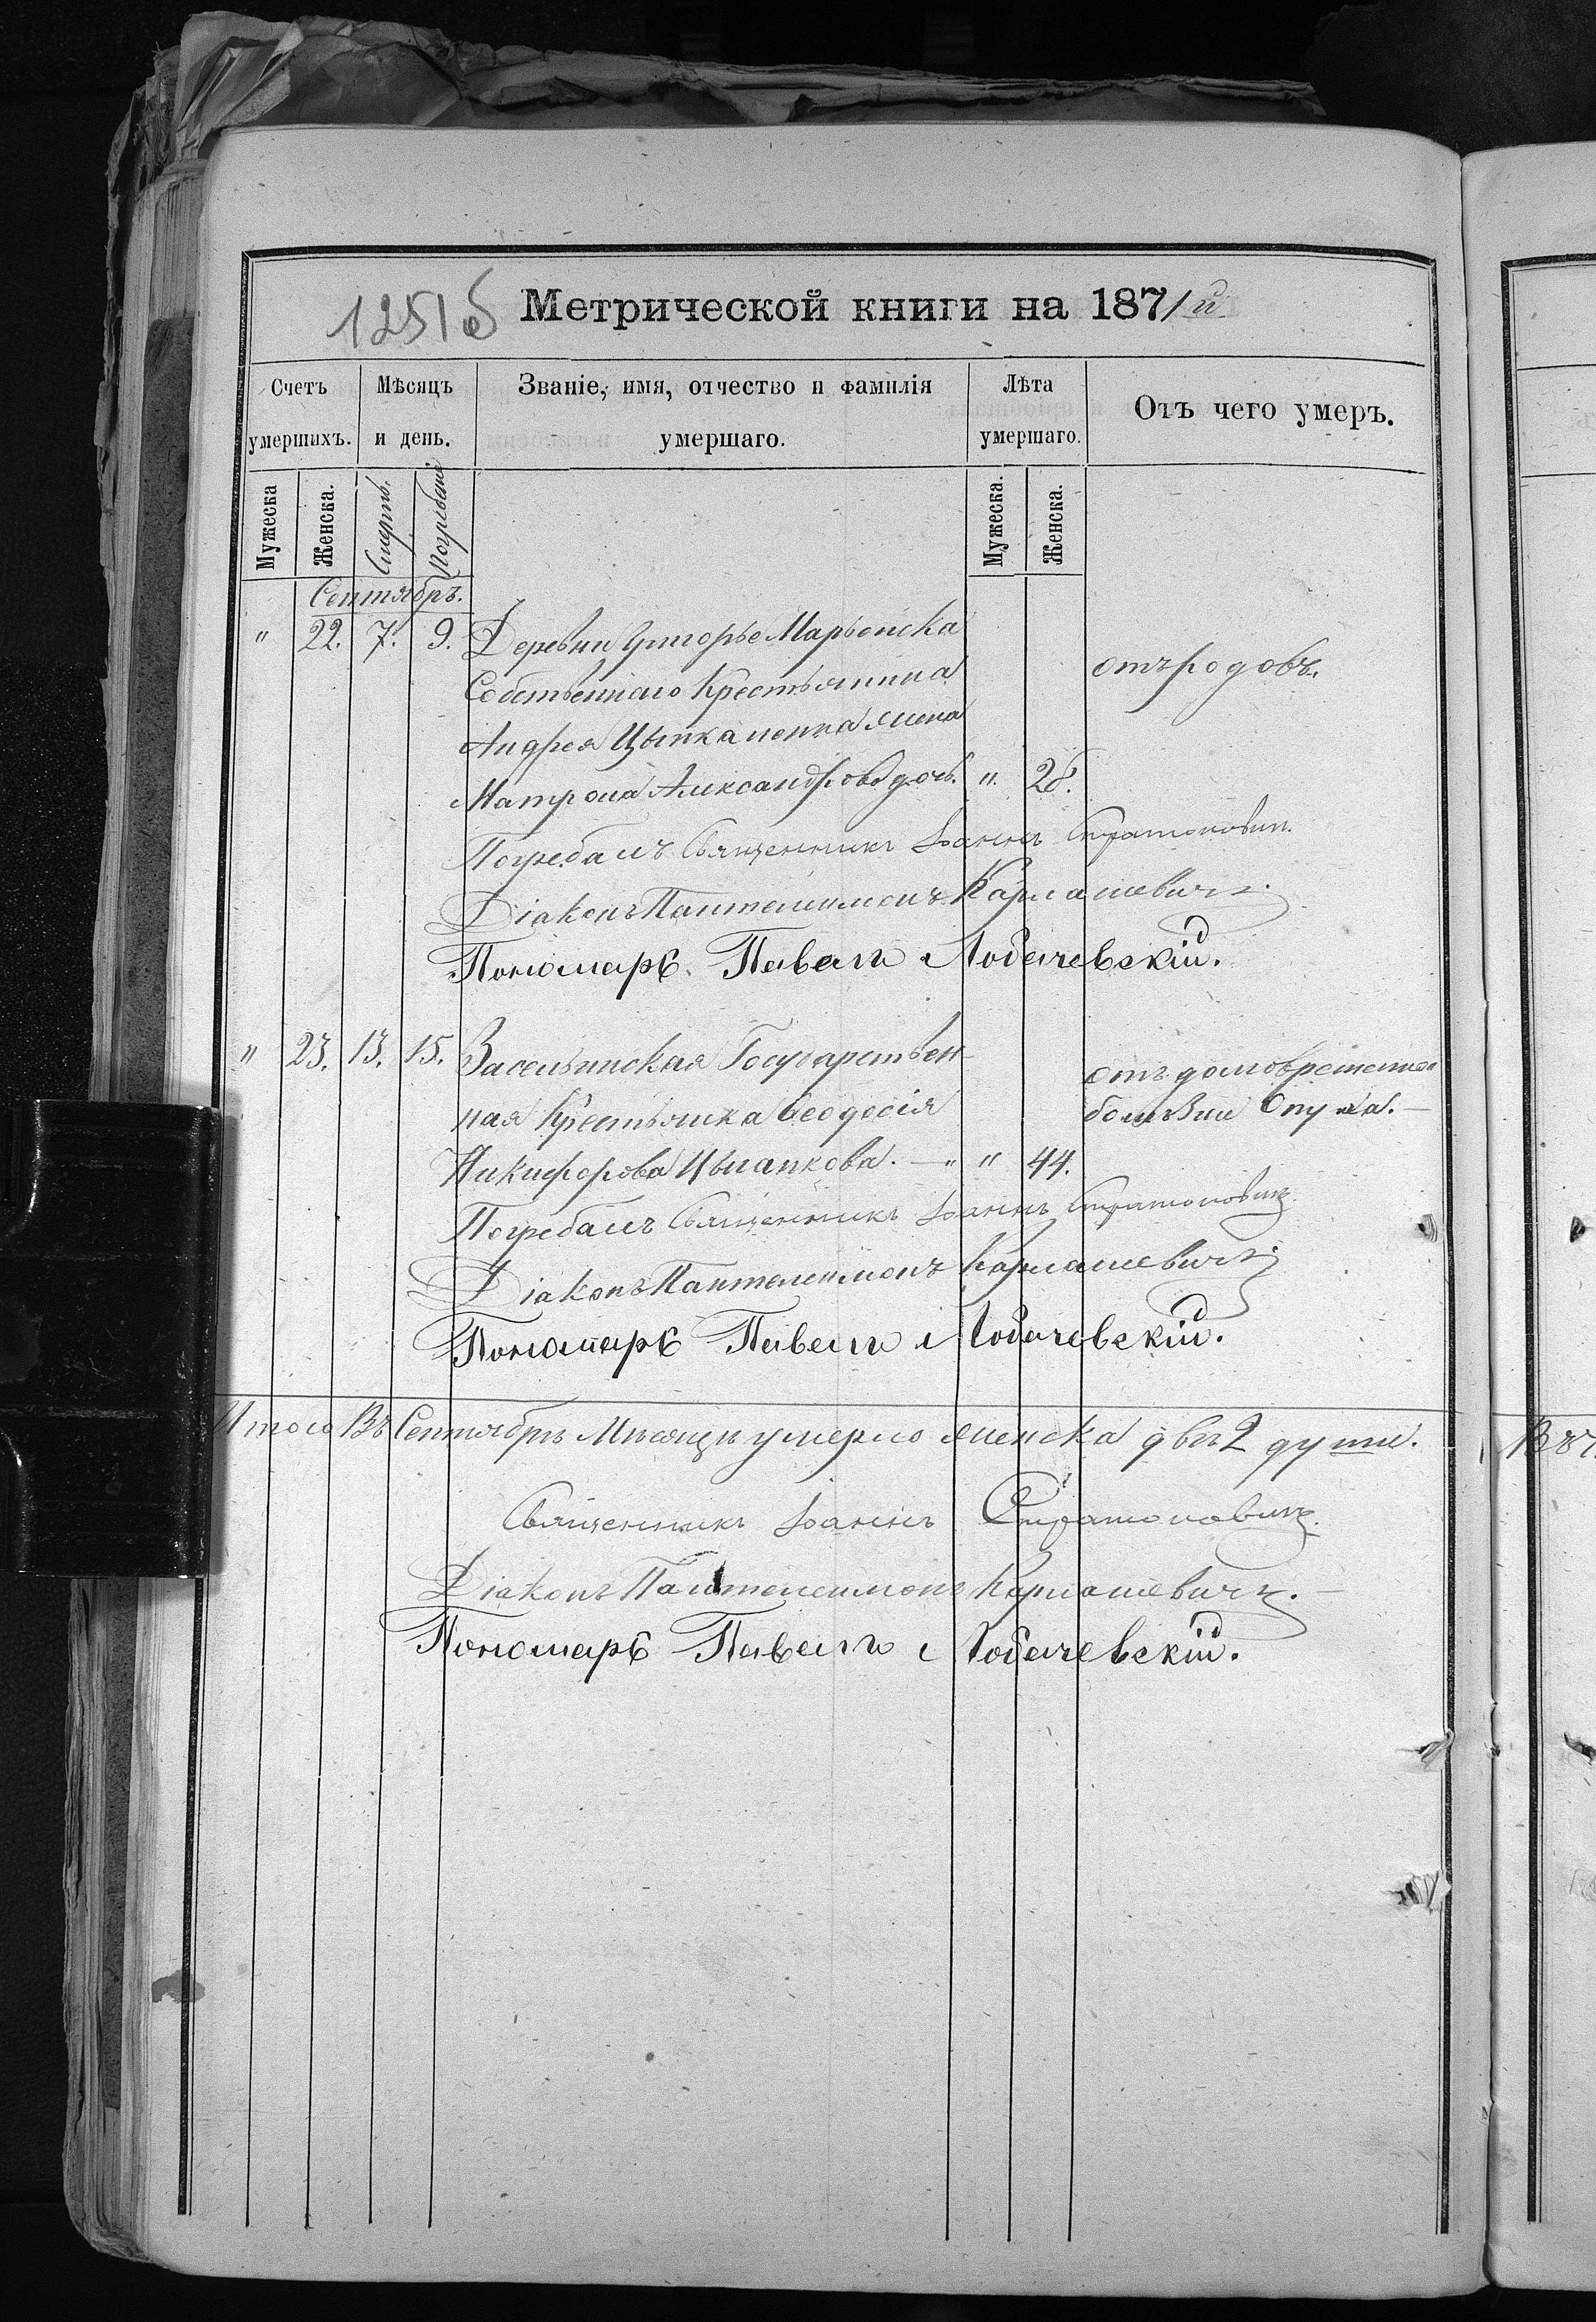 1251б Метрической книги на 1871й
Счетъ умершихъ.
Мѣсяцъ и день.
Званіе, имя, отчество и фамилія умершаго.
Лѣта умершаго.
Отъ чего умеръ.
Мужеска
Женска.
Смерть.
Погребеніе
Мужеска.
Женска.
Сентябрь.
" 22. 7. 9. Деревни Григорье Марьенска
Собственнаго Крестьянина
отъ родовъ.
Андрея Цыпкаленка жена
Матрона Александрова дочь. " 28.
Погребалъ Священникъ Іоаннъ Стратоновичъ.
Діаконъ Пантелеимонъ Карпашевичъ.
Пономарь Павелъ Лобачевскій.
" 23. 13. 15. Засельинская Государствен
отъ долговременной
ная Крестьянка Ѳеодосія
болѣзни Опуха.—
Никифорова Цыганкова. — " " 44.
Погребалъ Священникъ Іоаннъ Стратоновичъ.
Діаконъ Пантелеимонъ Карпашевичъ.
Пономарь Павелъ Лобачевскій.
Итого Въ Сентябрѣ Мѣсяцѣ умерло женска двѣ 2 души.
Священникъ Іоаннъ Стратоновичъ.
Діаконъ Пантелеимонъ Карпашевичъ.—
Пономарь Павелъ Лобачевскій.